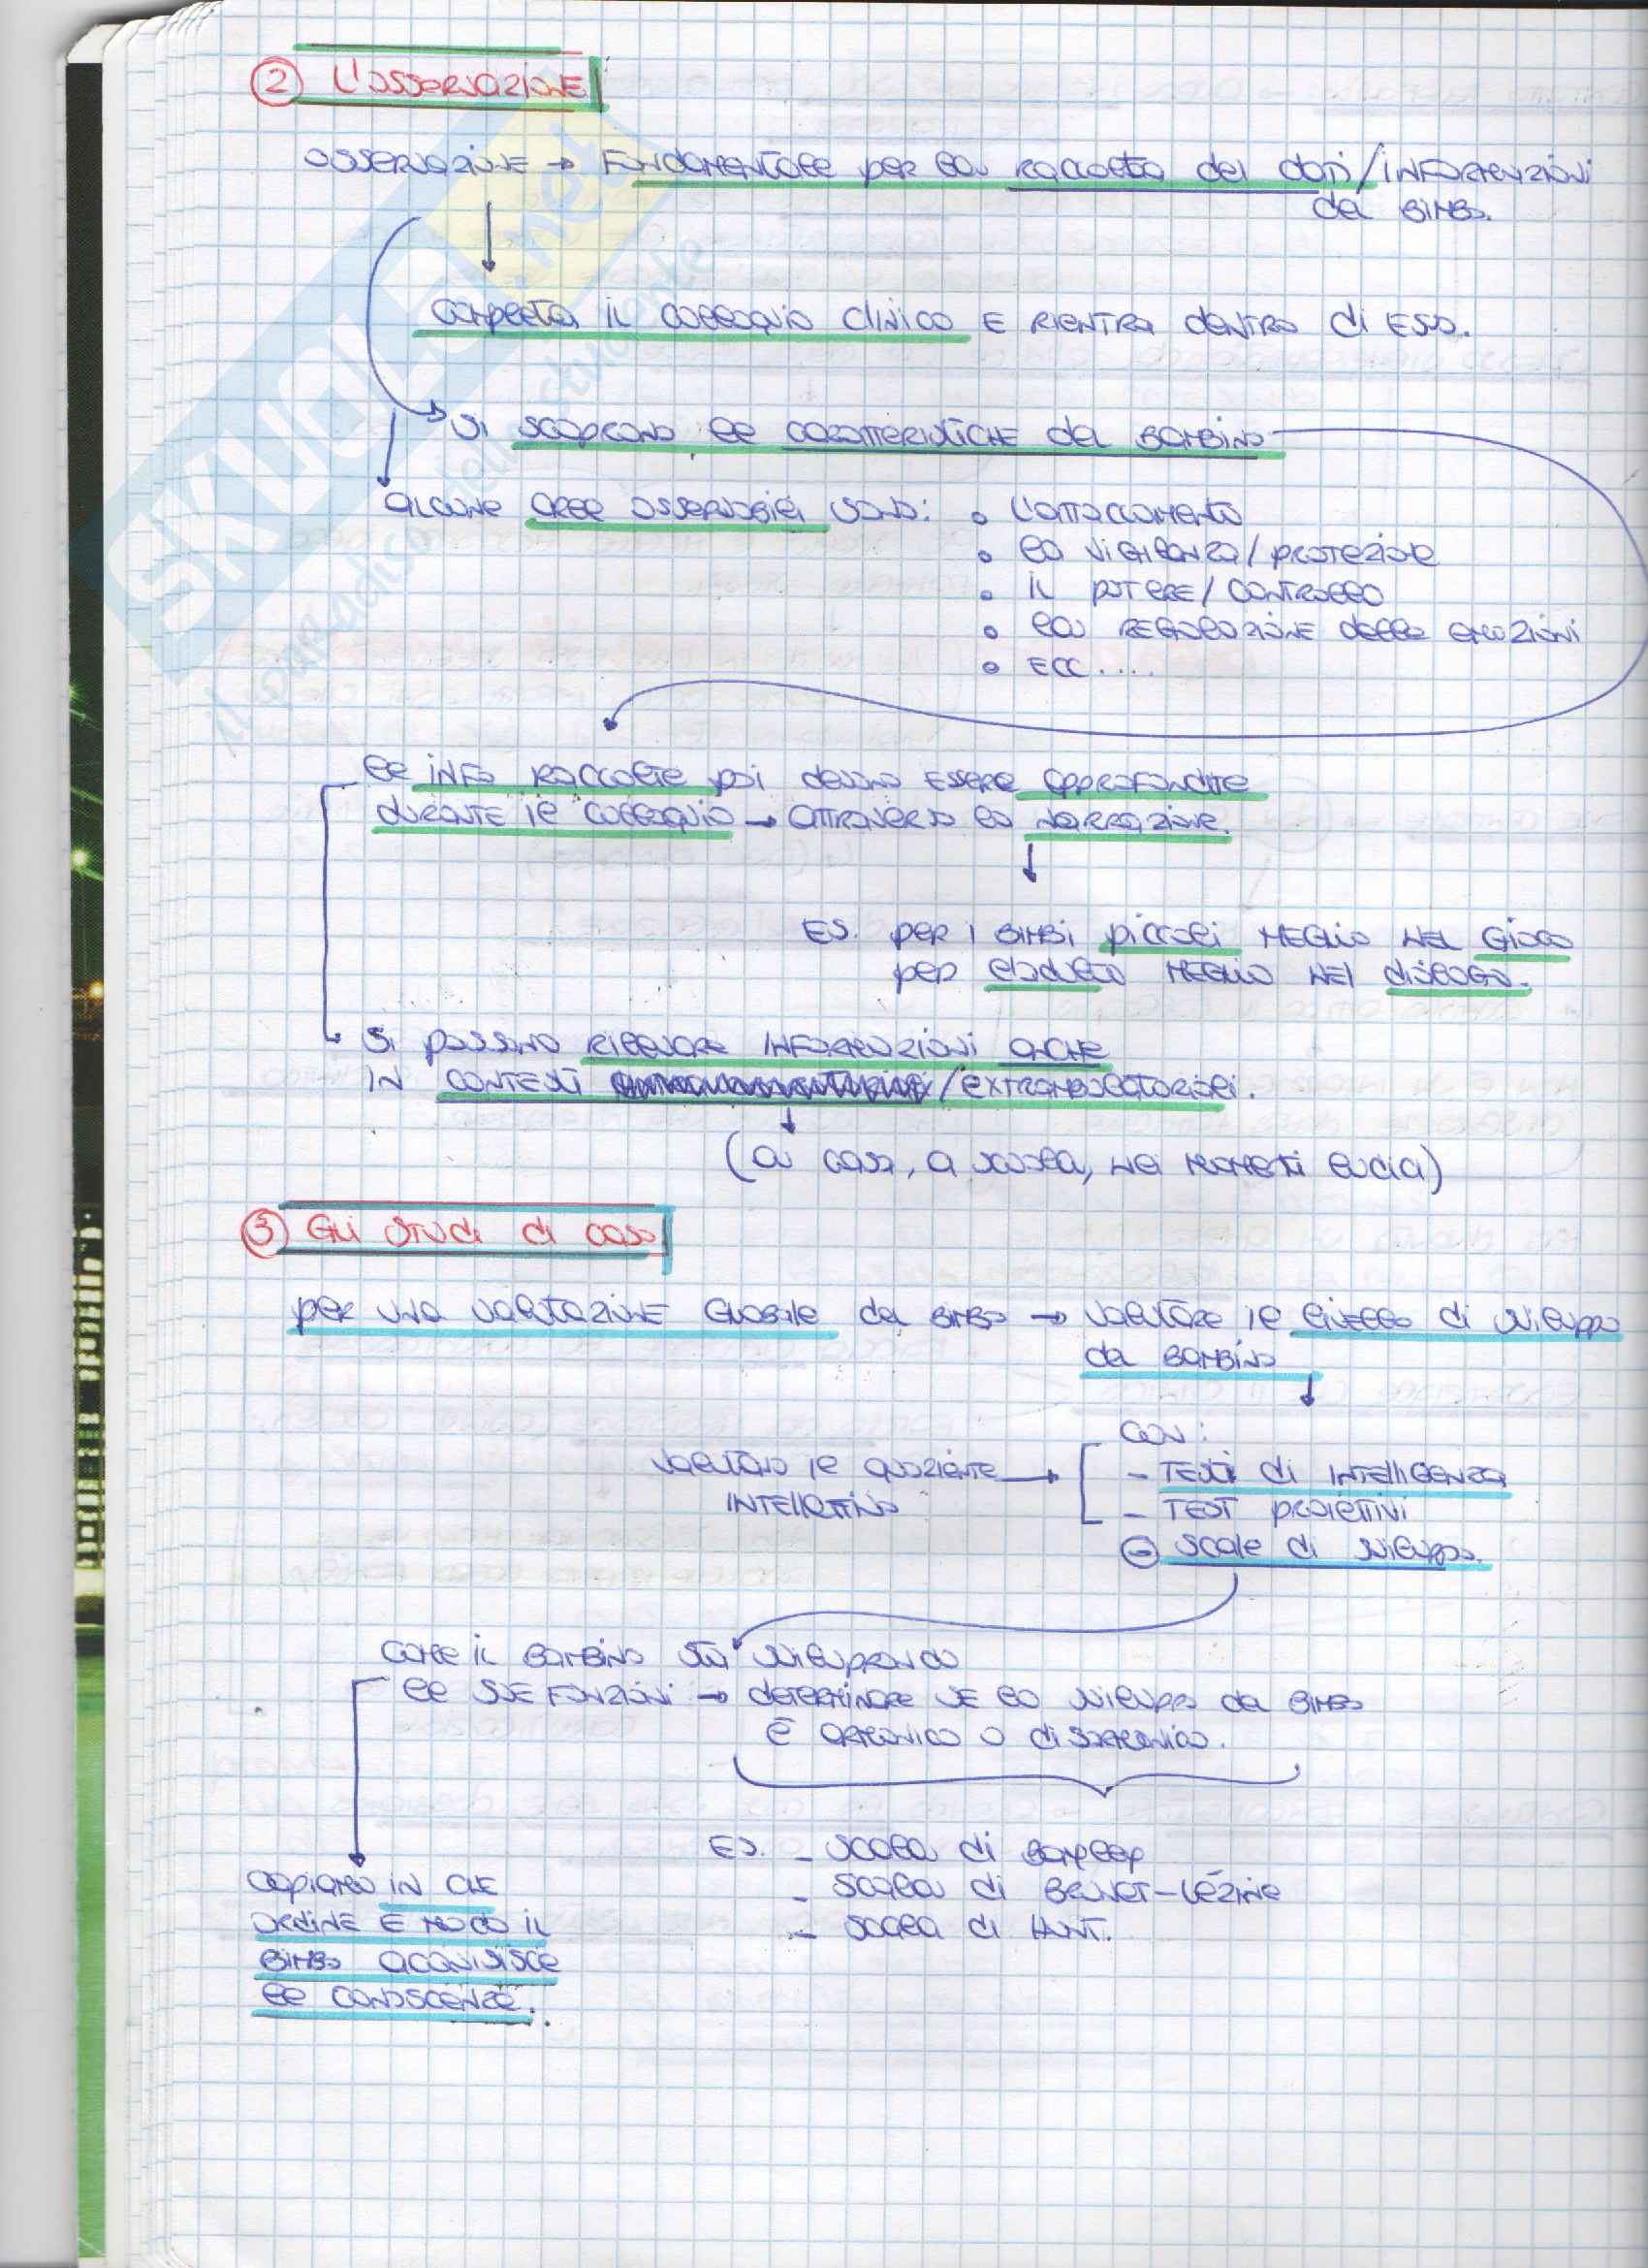 ② L'OSSERVAZIONE
OSSERVAZIONE → FONDAMENTALE per la RACCOLTA dei dati/INFORMAZIONI
del BIMBO.
COMPLETA il COLLOQUIO CLINICO E RIENTRA dENTRO di ESSO.
Si SCOPRONO le CARATTERISTICHE del BAMBINO
ALCUNE AREE OSSERVABILI SONO: • L'ATTACCAMENTO
• la VIGILANZA/PROTEZIONE
• il POTERE/CONTROLLO
• la REGOLAZIONE delle EMOZIONI
• ECC....
le INFO RACCOLTE poi devono ESSERE APPROFONDITE
dURANTE il COLLOQUIO → ATTRAVERSO la NARRAZIONE.
ES. per i BIMBI piccoli MEGLIO NEL GIOCO
per MEGLIO NEL diALOGO.
Si possono RILEVARE INFORMAZIONI ANCHE
IN CONTESTI /EXTRAMBULATORIALI.
(A CASA, A SCUOLA, NEI MOMENTI LUDICI)
③ Gli STUdi di CASO
per UNA VALUTAZIONE GLOBALE del BIMBO → VALUTARE il livello di SVILUPPO
del BAMBINO
CON:
VALUTANO il QUOZIENTE → - TEST di INTELLIGENZA
INTELLETTIVO - TEST PROIETTIVI
- SCALE di SVILUPPO.
COME il BAMBINO STA SVILUPPANDO
le SUE FUNZIONI → dETERMINARE SE LO SVILUPPO del BIMBO
È ARMONICO O diSARMONICO.
ES. - SCALA di
CAPIAMO IN CHE - SCALA di BRUNET-LÉZINE
ORdiNE E MODO il - SCALA di HUNT.
BIMBO ACQUISISCE
le CONOSCENZE.
SKUOLA.net
il paradiso dello studente